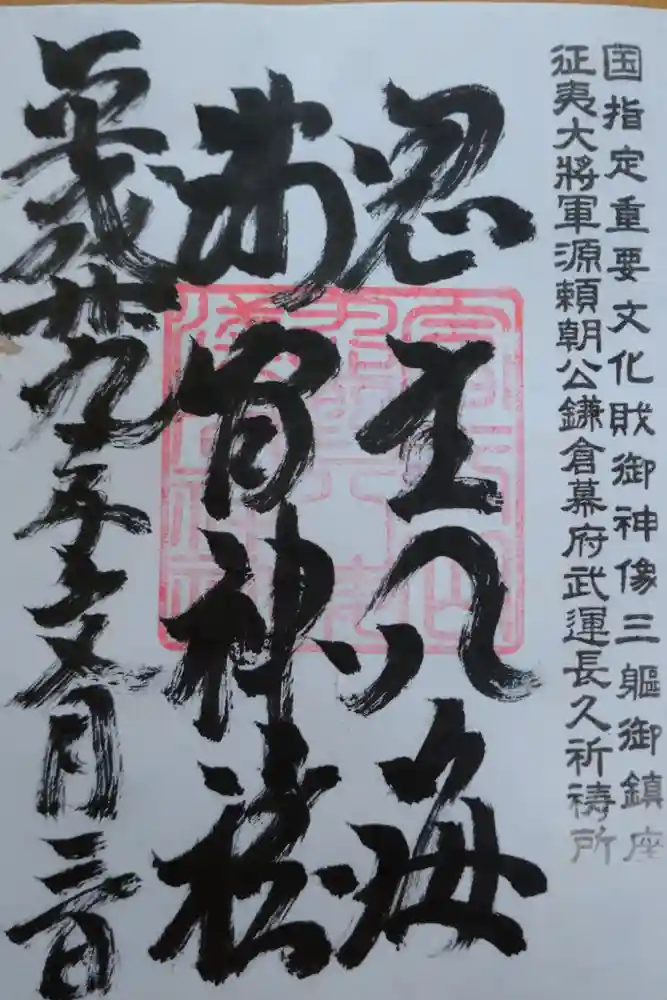 国指定重要文化財御神像三躯御鎮座
征夷大將軍源頼朝公鎌倉幕府武運長久祈祷所
忍野八海
浅間神社
平成廿九年文月三日